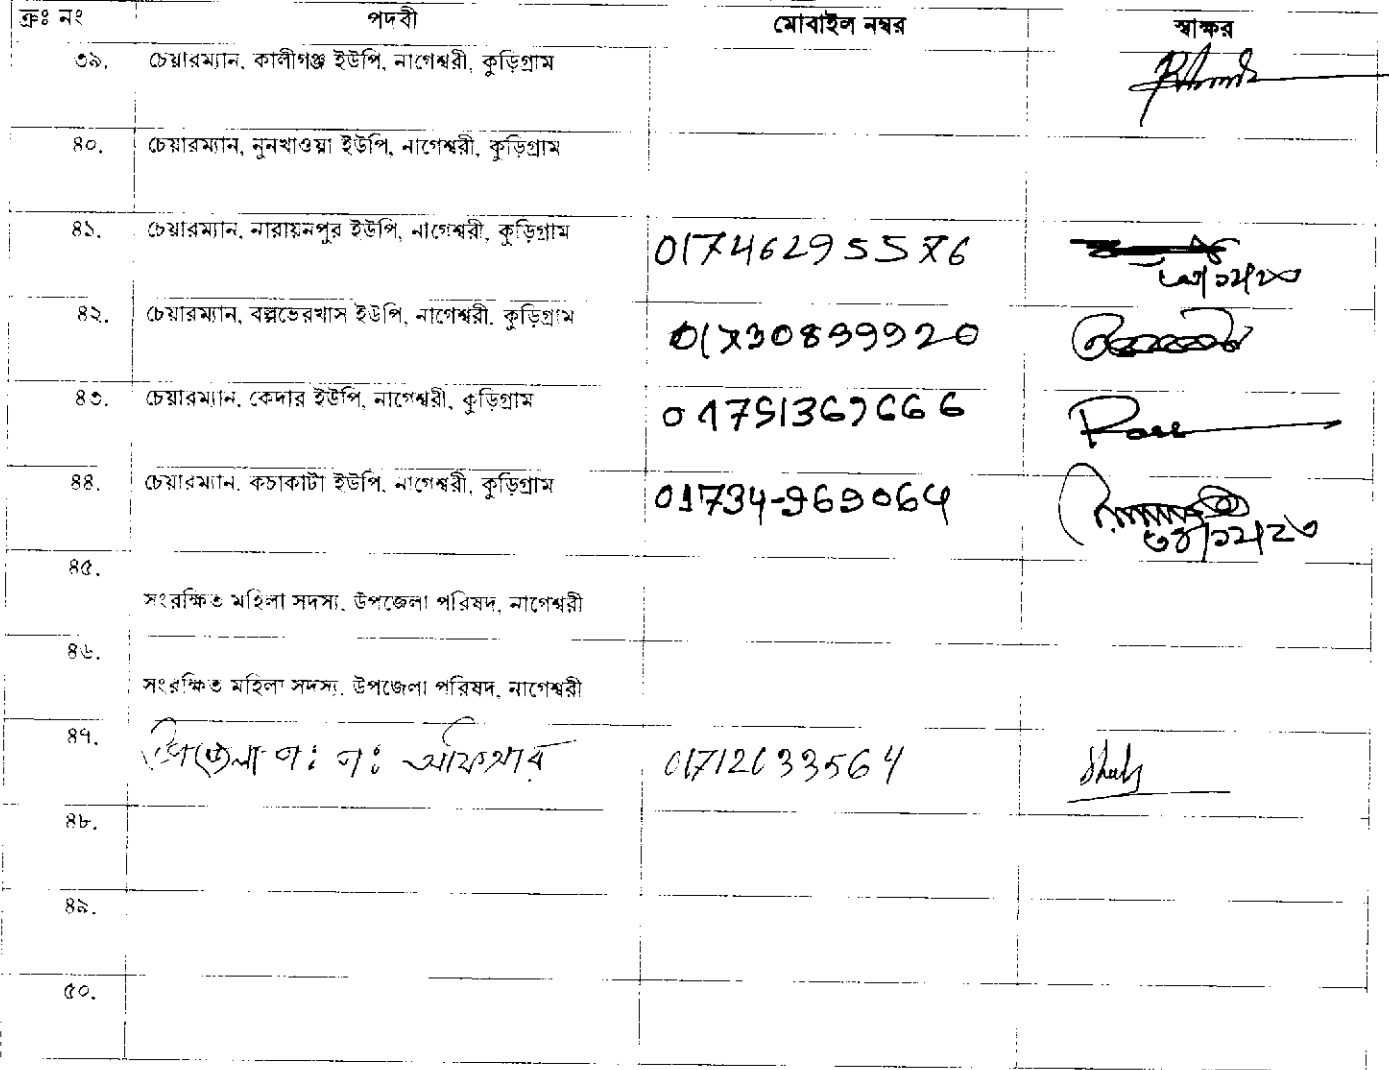 ক্রঃ নং পদবী মোবাইল নম্বর স্বাক্ষর
৩৯. চেয়ারম্যান, কালীগঞ্জ ইউপি, নাগেশ্বরী, কুড়িগ্রাম
৪০. চেয়ারম্যান, নুনখাওয়া ইউপি, নাগেশ্বরী, কুড়িগ্রাম
৪১. চেয়ারম্যান, নারায়নপুর ইউপি, নাগেশ্বরী, কুড়িগ্রাম 01746295576
৪২. চেয়ারম্যান, বল্লভেরখাস ইউপি, নাগেশ্বরী, কুড়িগ্রাম 01730899920
৪৩. চেয়ারম্যান, কেদার ইউপি, নাগেশ্বরী, কুড়িগ্রাম 01751367666
৪৪. চেয়ারম্যান, কচাকাটা ইউপি, নাগেশ্বরী, কুড়িগ্রাম 01734-969064
৪৫.
সংরক্ষিত মহিলা সদস্য, উপজেলা পরিষদ, নাগেশ্বরী
৪৬.
সংরক্ষিত মহিলা সদস্য, উপজেলা পরিষদ, নাগেশ্বরী
৪৭. উপজেলা প: প: অফিসার 01712033564
৪৮.
৪৯.
৫০.